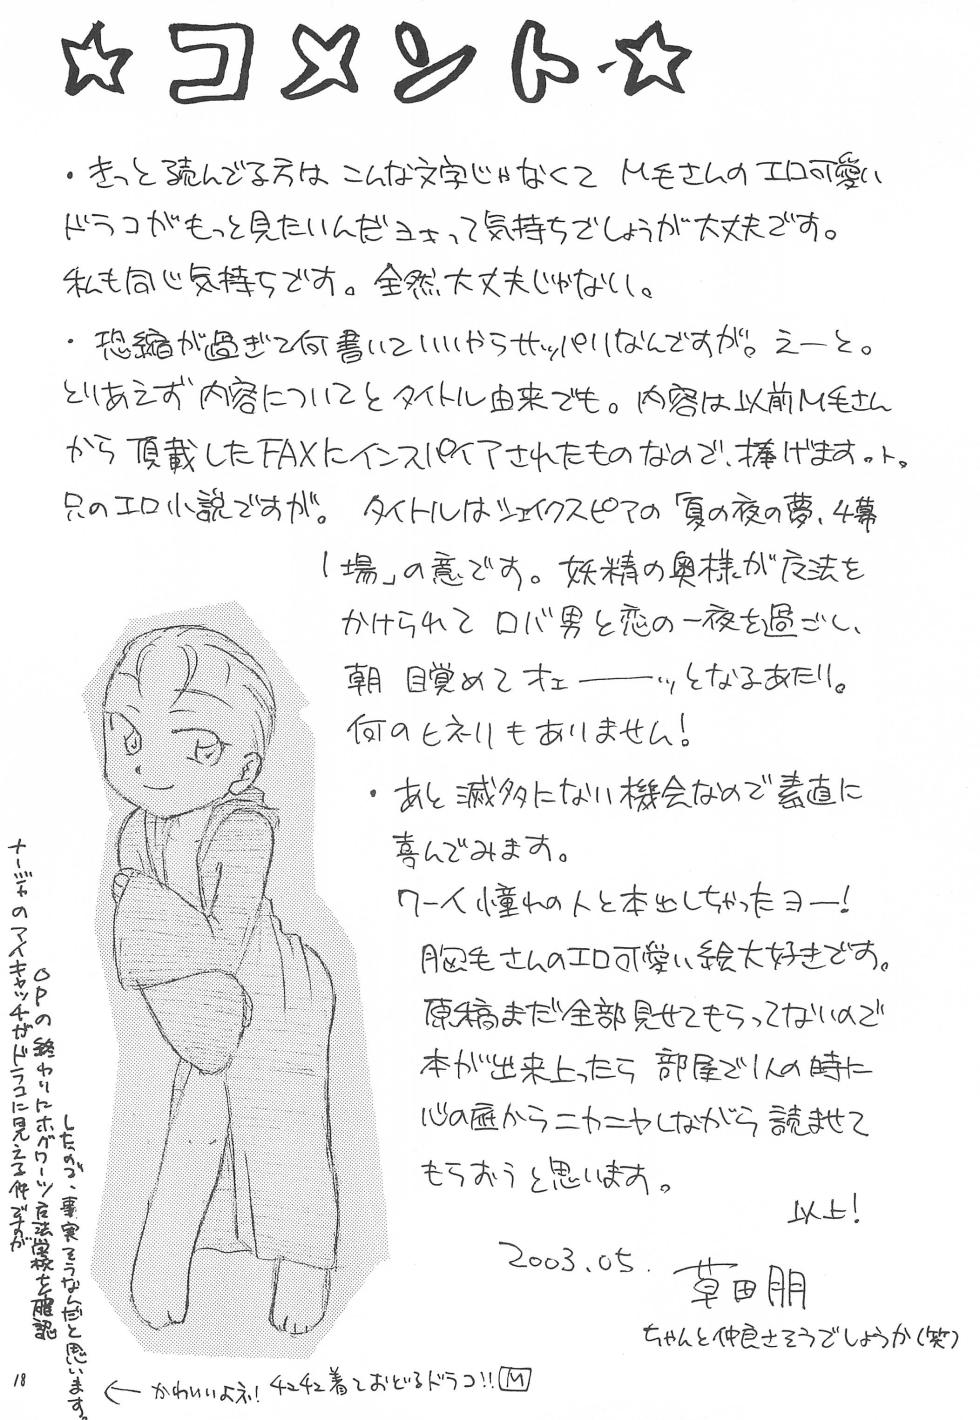 ☆コメント☆
・きっと読んでる方は こんな文字じゃなくて M毛さんの エロ可愛い
ドラコがもっと見たいんだヨォって気持ちでしょうが大丈夫です。
私も同じ気持ちです。全然大丈夫じゃない。
・恐縮が過ぎて何書いていいやらサッパリなんですが。えーと。
とりあえず内容についてとタイトル由来でも。内容は以前M毛さん
から頂戴したFAXにインスパイアされたものなので、捧げます。ト。
只のエロ小説ですが。 タイトルはシェイクスピアの「夏の夜の夢、4幕
1場」の意です。妖精の奥様が広法を
かけられて ロバ男と恋の一夜を過ごし、
朝 目覚めてオェ――ッとなるあたり。
何のヒネリもありません!
・あと滅多にない機会なので素直に
喜んでみます。
ワーイ憧れの人と本出しちゃったヨー!
胸毛さんのエロ可愛い絵大好きです。
原稿まだ全部見せてもらってないので
本が出来上ったら 部屋で1人の時に
心の庭からニヤニヤしながら読ませて
もらおうと思います。
以上!
2003.05.
草田朋
ちゃんと仲良さそうでしょうか(笑)
ナージャのアイキャッチがドラコに見える件ですが
OPの終わりにホグワーツ広法学校を確認
したので、事実そうなんだと思います。
← かわいいよネ! 4242着ておどるドラコ!! M
18